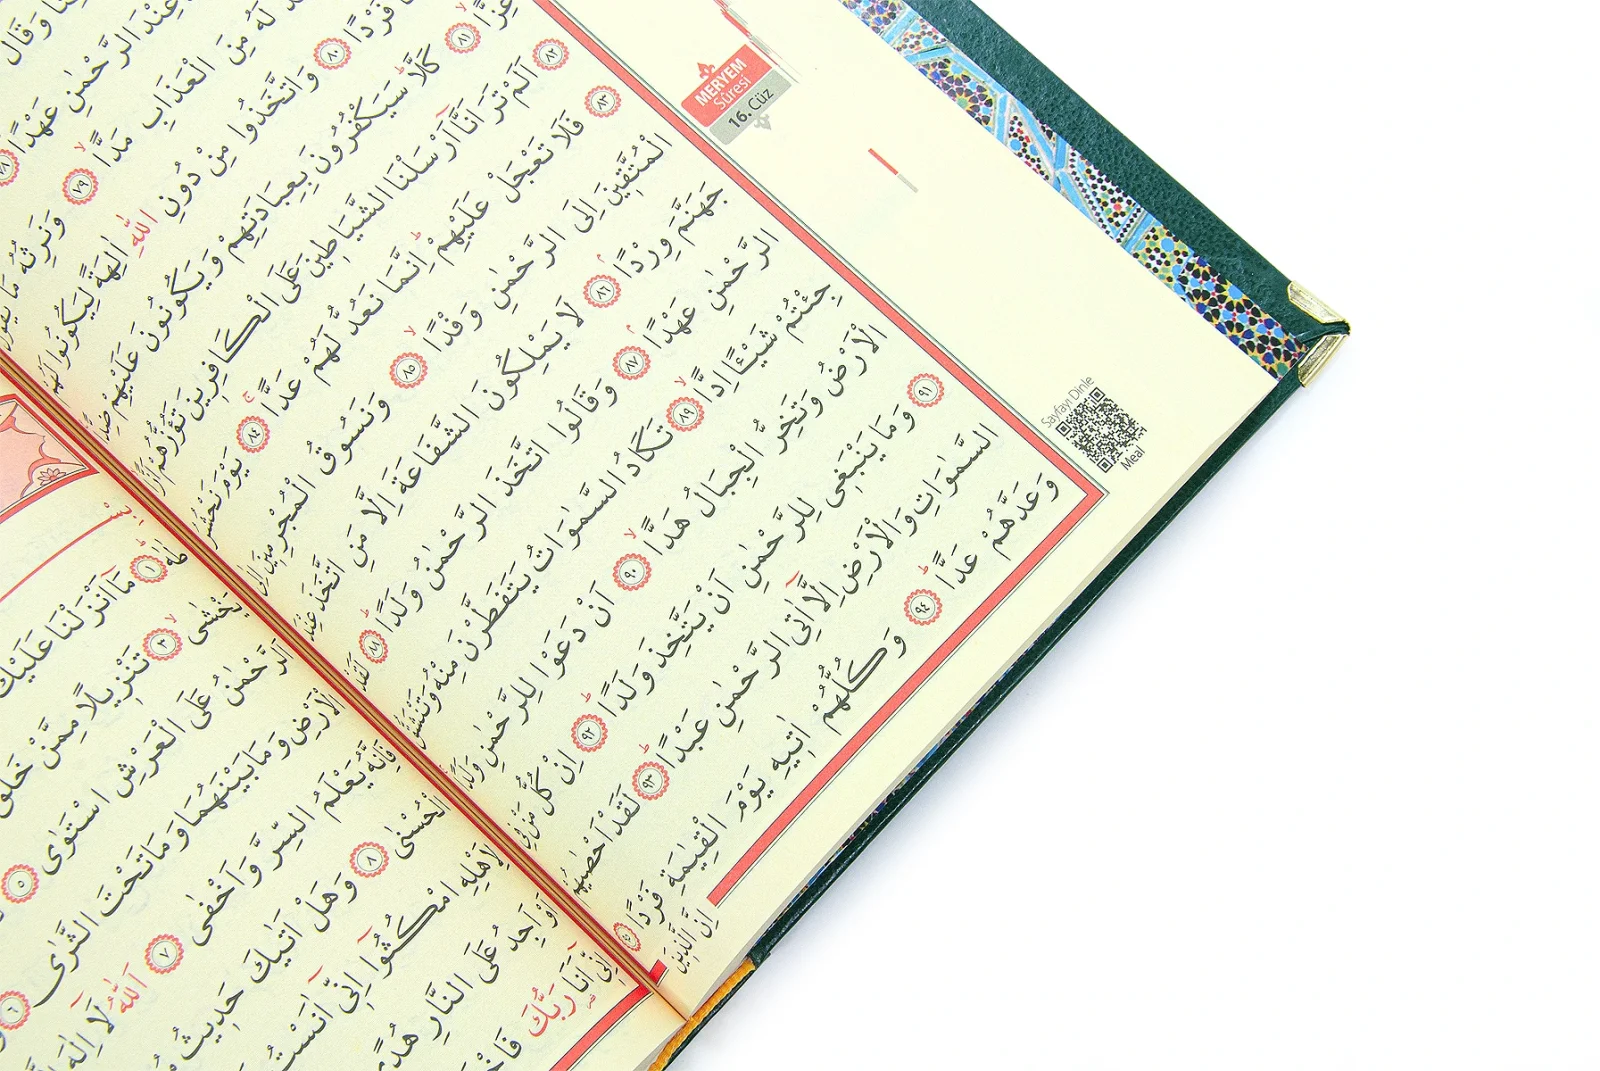 وَقَالَ
عِنْدَ الرَّحْمٰنِ عَهْدًا ﴿٧٨﴾
لَهُ مِنَ الْعَذَابِ مَدًّا ﴿٧٩﴾ وَنَرِثُهُ مَا يَقُولُ
فَرْدًا ﴿٨٠﴾ وَاتَّخَذُوا مِنْ دُونِ اللّٰهِ اٰلِهَةً لِيَكُونُوا لَهُمْ
عِزًّا ﴿٨١﴾ كَلَّا سَيَكْفُرُونَ بِعِبَادَتِهِمْ وَيَكُونُونَ عَلَيْهِمْ ضِدًّا
﴿٨٢﴾ اَلَمْ تَرَ اَنَّٓا اَرْسَلْنَا الشَّيَاطِينَ عَلَى الْكَافِرِينَ تَؤُزُّهُمْ اَزًّا
﴿٨٣﴾ فَلَا تَعْجَلْ عَلَيْهِمْ اِنَّمَا نَعُدُّ لَهُمْ عَدًّا ﴿٨٤﴾ يَوْمَ نَحْشُرُ
الْمُتَّقِينَ اِلَى الرَّحْمٰنِ وَفْدًا ﴿٨٥﴾ وَنَسُوقُ الْمُجْرِمِينَ اِلٰى
جَهَنَّمَ وِرْدًا ﴿٨٦﴾ لَا يَمْلِكُونَ الشَّفَاعَةَ اِلَّا مَنِ اتَّخَذَ عِنْدَ
الرَّحْمٰنِ عَهْدًا ﴿٨٧﴾ وَقَالُوا اتَّخَذَ الرَّحْمٰنُ وَلَدًا ﴿٨٨﴾ لَقَدْ
جِئْتُمْ شَيْـًٔا اِدًّا ﴿٨٩﴾ تَكَادُ السَّمٰوَاتُ يَتَفَطَّرْنَ مِنْهُ وَتَنْشَقُّ
الْاَرْضُ وَتَخِرُّ الْجِبَالُ هَدًّا ﴿٩٠﴾ اَنْ دَعَوْا لِلرَّحْمٰنِ وَلَدًا
﴿٩١﴾ وَمَا يَنْبَغِي لِلرَّحْمٰنِ اَنْ يَتَّخِذَ وَلَدًا ﴿٩٢﴾ اِنْ كُلُّ مَنْ فِي
السَّمٰوَاتِ وَالْاَرْضِ اِلَّٓا اٰتِي الرَّحْمٰنِ عَبْدًا ﴿٩٣﴾ لَقَدْ اَحْصٰيهُمْ
وَعَدَّهُمْ عَدًّا ﴿٩٤﴾ وَكُلُّهُمْ اٰتِيهِ يَوْمَ الْقِيٰمَةِ فَرْدًا ﴿٩٥﴾
اِنَّ الَّذِينَ
MERYEM
Sûresi
16. Cüz
Sayfayı Dinle
Meal
طٰهٰ ﴿١﴾ مَٓا اَنْزَلْنَا عَلَيْكَ
يَخْشٰى ﴿٣﴾ تَنْزِيلًا مِمَّنْ خَلَقَ
اَلرَّحْمٰنُ عَلَى الْعَرْشِ اسْتَوٰى ﴿٥﴾
الْاَرْضِ وَمَا بَيْنَهُمَا وَمَا تَحْتَ الثَّرٰى ﴿٦﴾
فَاِنَّهُ يَعْلَمُ السِّرَّ وَاَخْفٰى ﴿٧﴾ اَللّٰهُ لَٓا اِلٰهَ
الْحُسْنٰى ﴿٨﴾ وَهَلْ اَتٰيكَ حَدِيثُ
لِاَهْلِهِ امْكُثُٓوا اِنِّٓي اٰنَسْتُ
اَوْ اَجِدُ عَلَى النَّارِ هُدًى
اِنِّٓي اَنَا رَبُّكَ